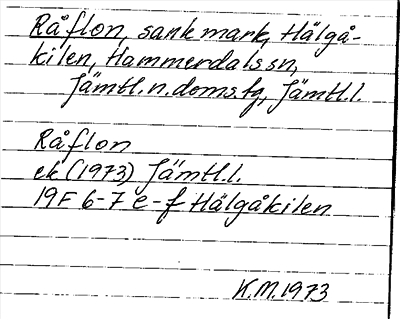 Råflon, sank mark, Hälgå-
kilen, Hammerdals sn,
Jämtl.n.doms.tg, Jämtl.l.
Råflon
ek (1973) Jämtl.l.
19F 6-7 e-f Hälgåkilen
K.M. 1973